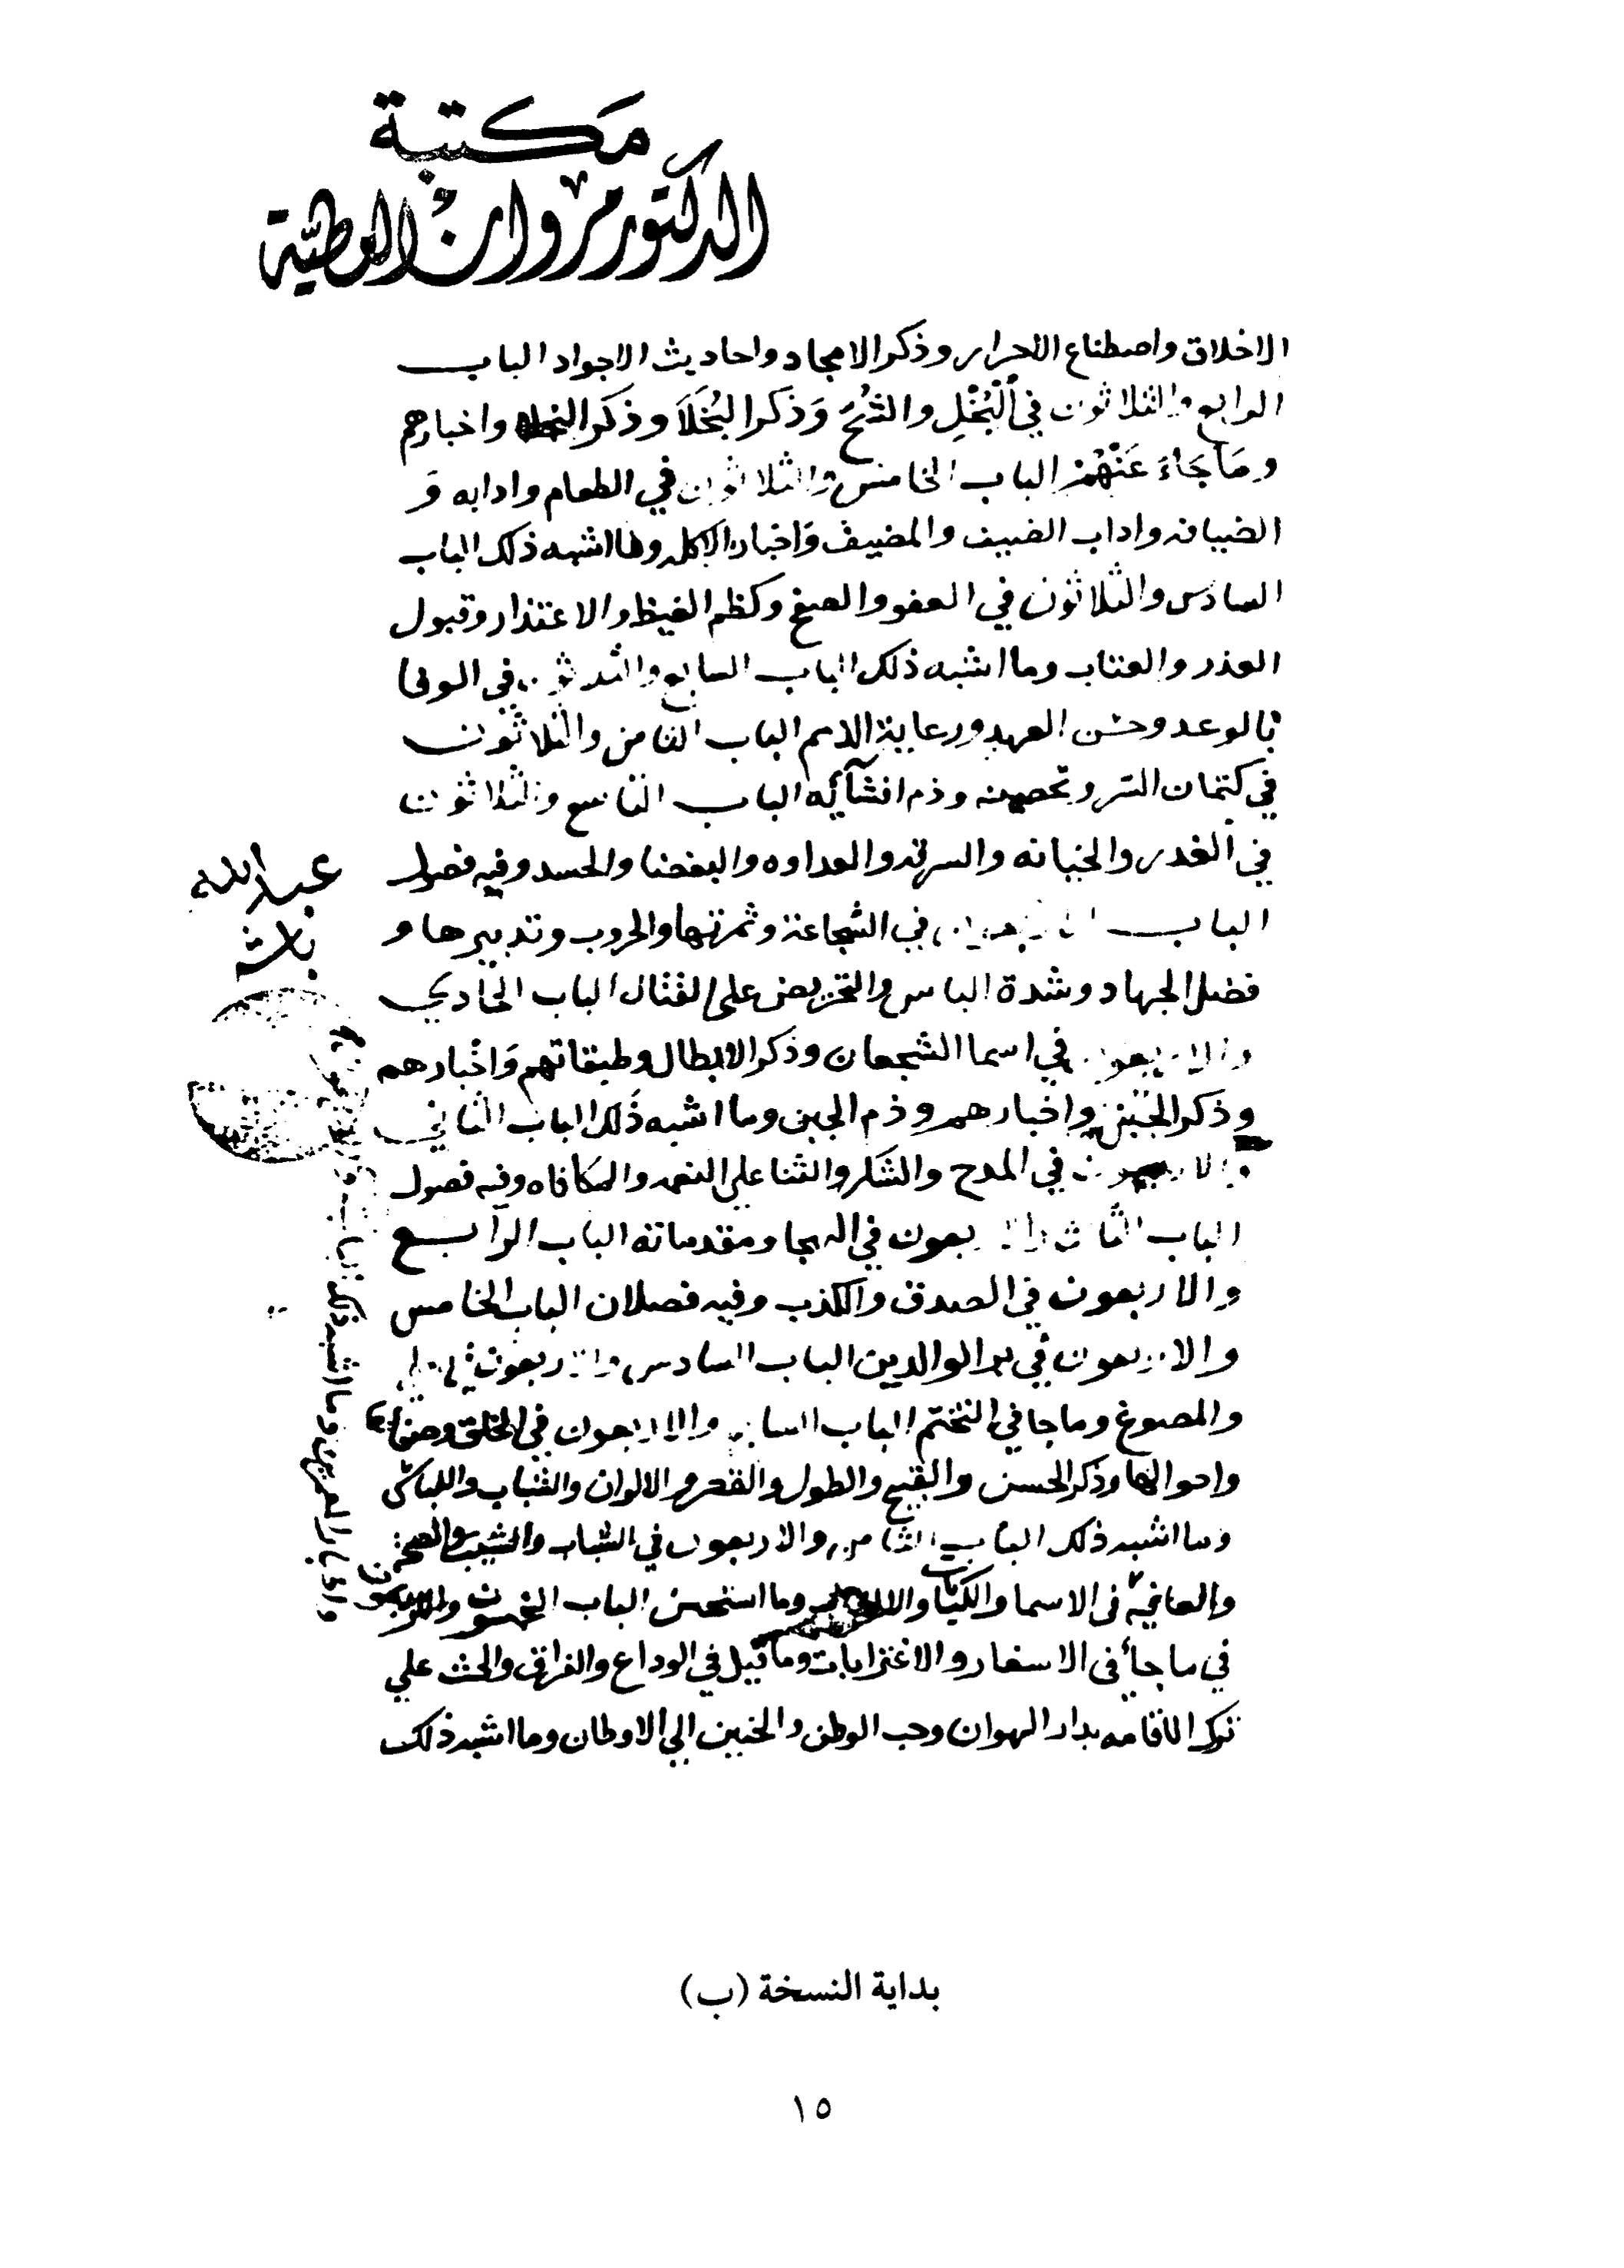 مكتبة
الدكتور مروان العطية
الاخلاق واصطناع الاحرار وذكر الامجاد واحاديث الاجواد الباب
الرابع والثلاثون في البُخْلِ والشُحّ وَذكر البُخَلَا وذكر واخبارهم
ومَا جَاءَ عَنْهُمْ الباب الخامس والثلاثون في الطعام وادابه وَ
الضيافه واداب الضيف والمضيف وَاخبار الاكله وما اشبه ذلك الباب
السادس والثلاثون في العفو والصفح وكظم الغيظ والاعتذار وقبول
العذر والعتاب وما اشبه ذلك الباب السابع والثلاثون في الوفا
بالوعد وحسن العهد ورعاية الذمم الباب الثامن والثلاثون
في كتمان السر وتحصينه وذم افشآئه الباب التاسع والثلاثون
في الغدر والخيانه والسرقه والعداوه والبغضا والحسد وفيه فصول
الباب الاربعون في الشجاعة وثمرتها والحروب وتدبيرها و
فضل الجهاد وشدة الباس والتحريض على القتال الباب الحادي
والاربعون في اسما الشجعان وذكر الابطال وطبقاتهم وَاخبارهم
وذكر الجبن واخبارهم وذم الجبن وما اشبه ذلك الباب الثاني
والاربعون في المدح والشكر والثنا علي النعمه والمكافاه وفيه فصول
الباب الثالث والاربعون في الهجا ومقدماته الباب الرابع
والاربعون في الصدق والكذب وفيه فصلان الباب الخامس
والاربعون في بر الوالدين الباب السادس والاربعون في
والمصوغ وما جا في التختم الباب السابع والاربعون في الخلق وصفاتها
واحوالها وذكر الحسن والقبيح والطول والقصر والالوان والثياب واللباس
وما اشبه ذلك الباب الثامن والاربعون في الشباب والشيب والصحة
والعافيه في الاسما والكنيات والالقاب وما استحسن الباب الخمسون
في ما جأ في الاسفار والاغترابات وما قيل في الوداع والفراق والحث علي
ترك الاقامه بدار الهوان وحب الوطن والحنين الي الاوطان وما اشبه ذلك
عبد الله
باشه
واخبار المعمرين وما اشبه ذلك الباب
بداية النسخة (ب)
١٥